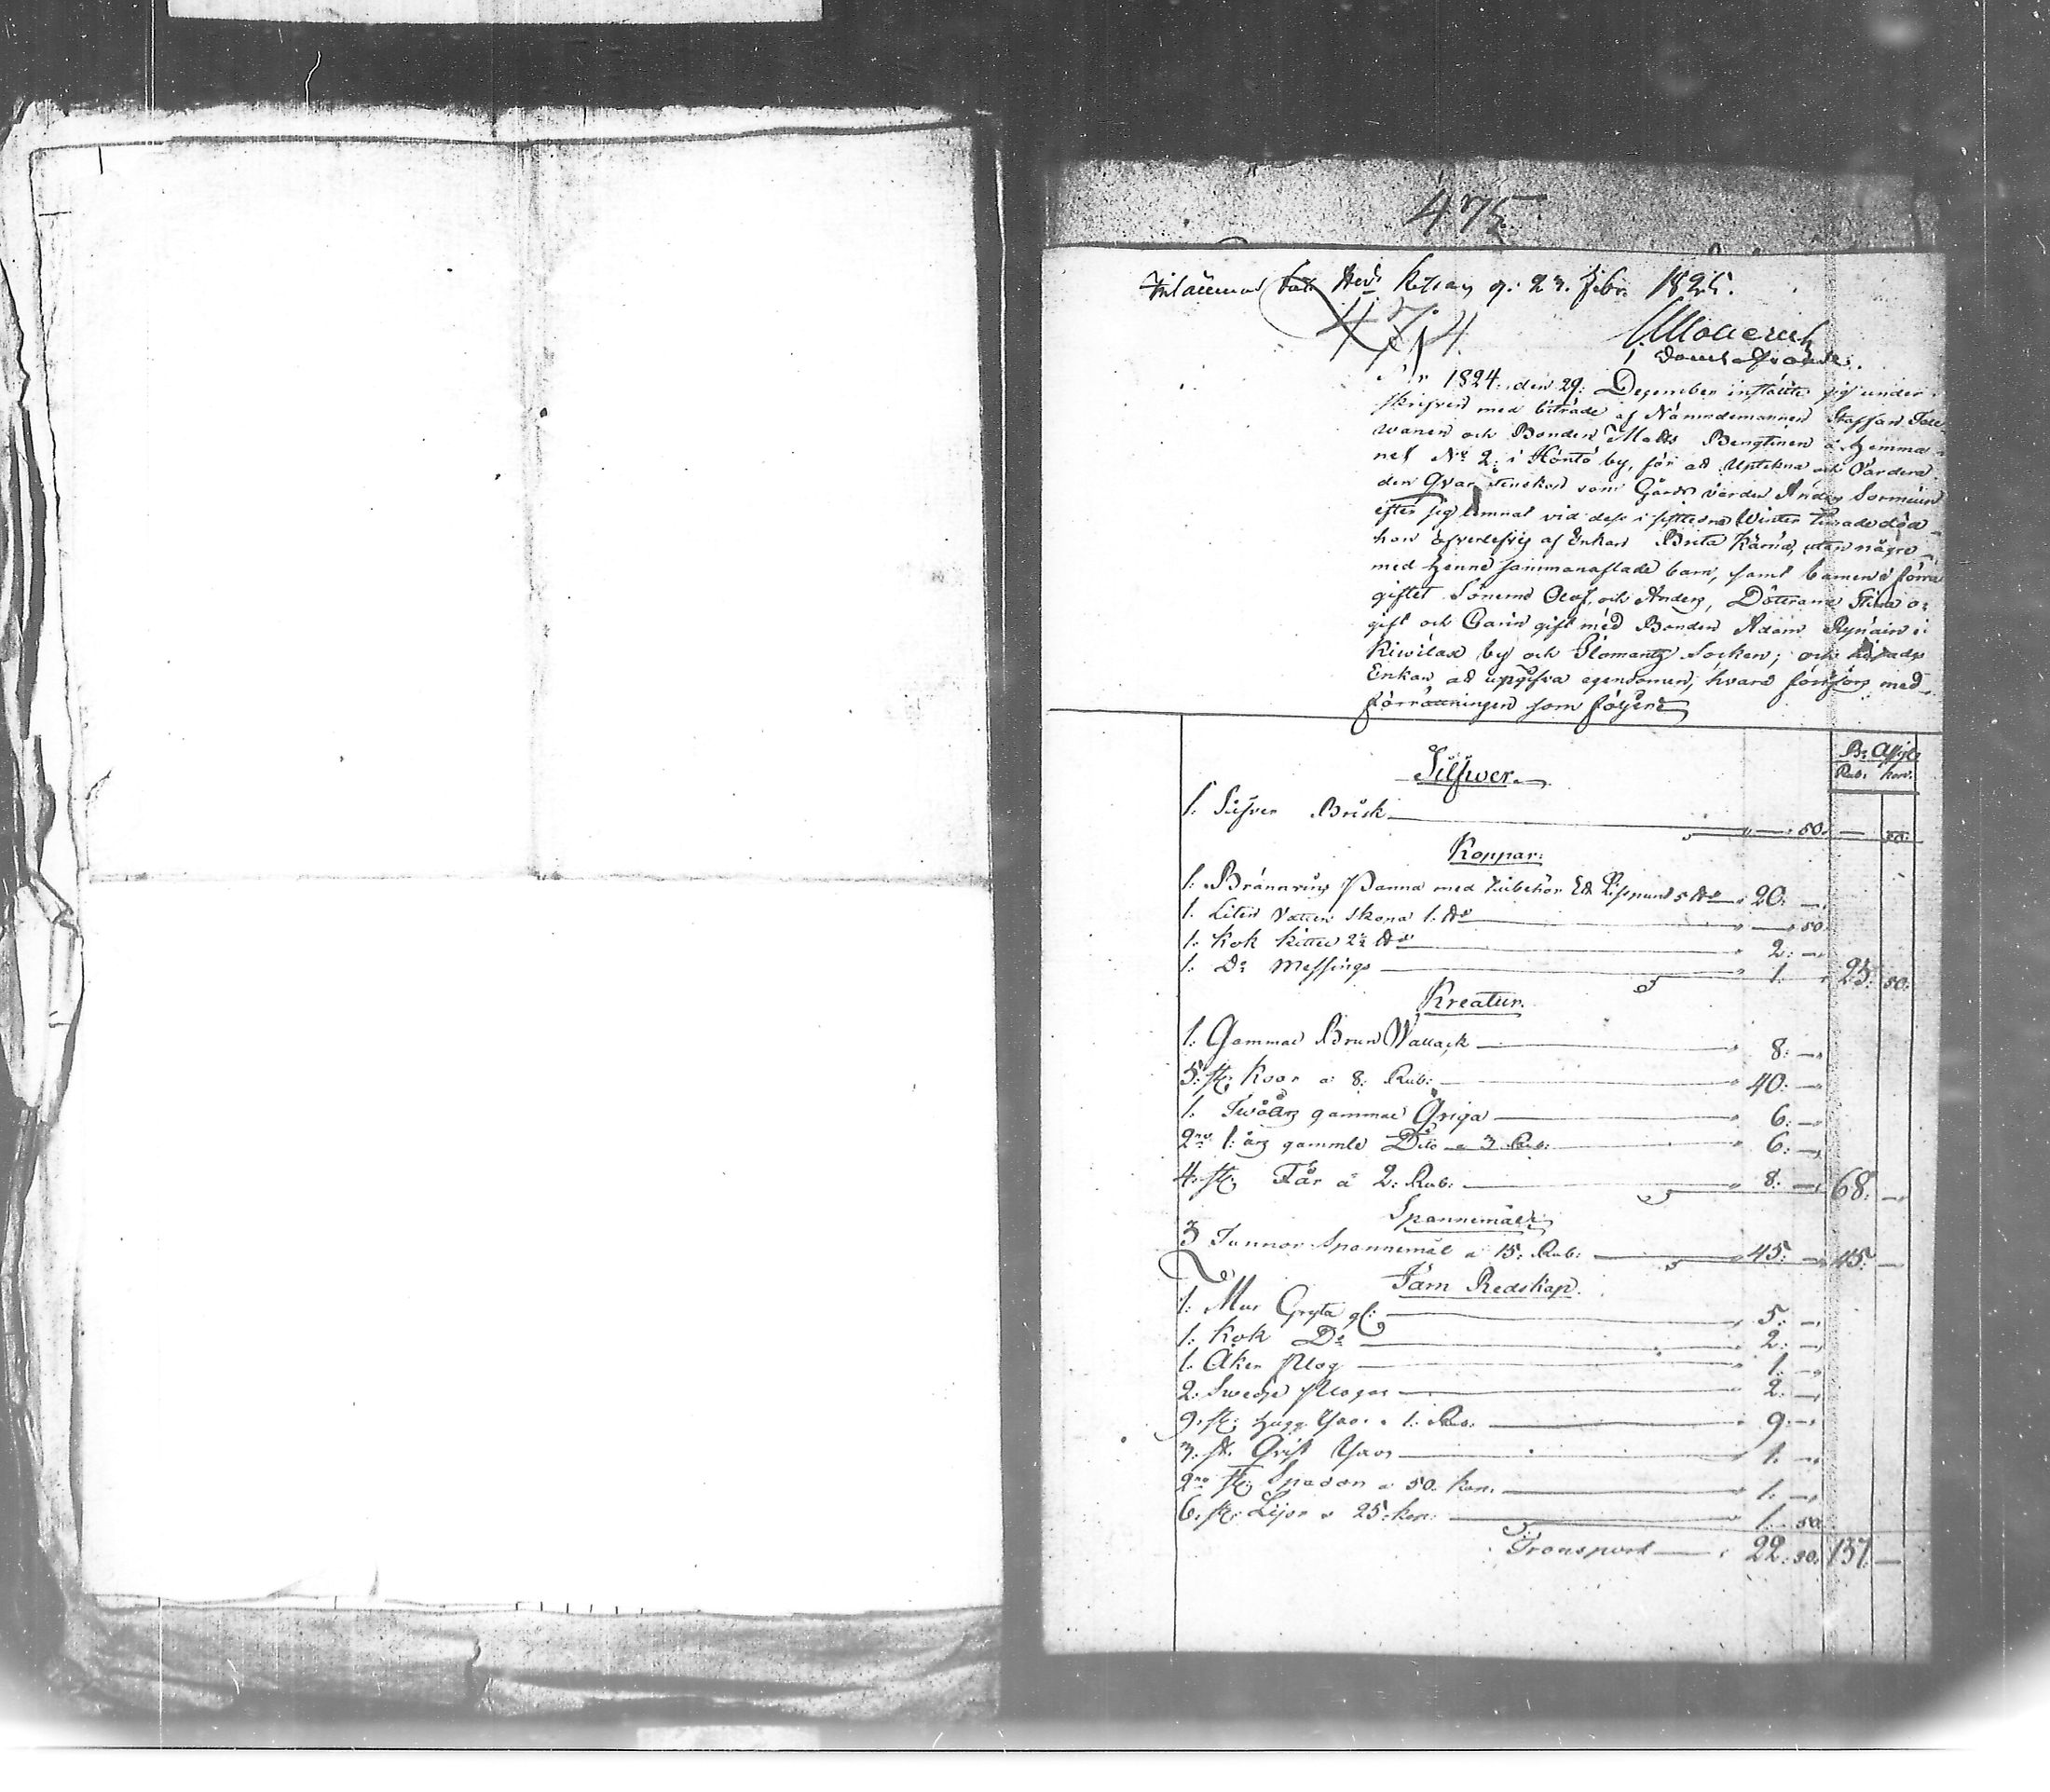 475.
Inlämnad d: 23. Febr. 1825.
474
År 1824. den 29: December inställte sig under-
skrifven med biträde af Nämndemannen Staffan
wanen och Bonden Matts Bengtinen å hemma-
net No 2: i Höntö by, för att Uptekna och Värdera
den Qvarlåtenskap som Gårds värden Anders Sormuin
efter sig lemnat vid dess i sistledne Winter timade död
hon öfverlefvis af Enkan Brita Kärnä, utan några
med henne sammanaflade barn, samt barnen i förra
giftet Sönerne Olof, och Anders, Döttrarne Stina o:
gift och Carin gift med Bonden Adam Rynäin i
Kiwilax by och Ilomantz Socken; och
Enkan att uppgifva egendomen, hvars med
förrättningen som följer
B: Assig:
Rub: kop:
Silfwer.
1: Silfver Brisk — 50. — 50:
Koppar:
1: Bränvins Panna med tilbehör Ett Lispund 5 ℔ 20: —
1. Liten Vatten Skopa 1. ℔ — 50
1: Kok kittel 2½ ℔ 2: —
1: Do Messings 1. 23: 50:
Kreatur.
1: Gammal Brun Wallack 8: —
5: st: Koor a: 8: Rub: 40: —
1: Twåårs gammal Qviga 6: —
2ne 1: års gamla Dito a 3 Rub: 6: —
4: st: Får a 2: Rub: 8: — 68: —
Spannemål:
3 Tunnor Spannemål a 15: Rub: 45: — 45: —
Järn Redskap.
1: Mur Gryta gl: 5: —
1: Kok Do 2: —
1: Åker Plog 1: —
2: Swedje Plogar 2: —
9: st: hugg Yxor a 1: Rub: 9: —
3: st: Qvist Yxor 1: —
2ne st: Spadar a 50. kop. 1: —
6: st: Lijor a 25: kop: 1: 50
Transport — 22: 50. 137 —